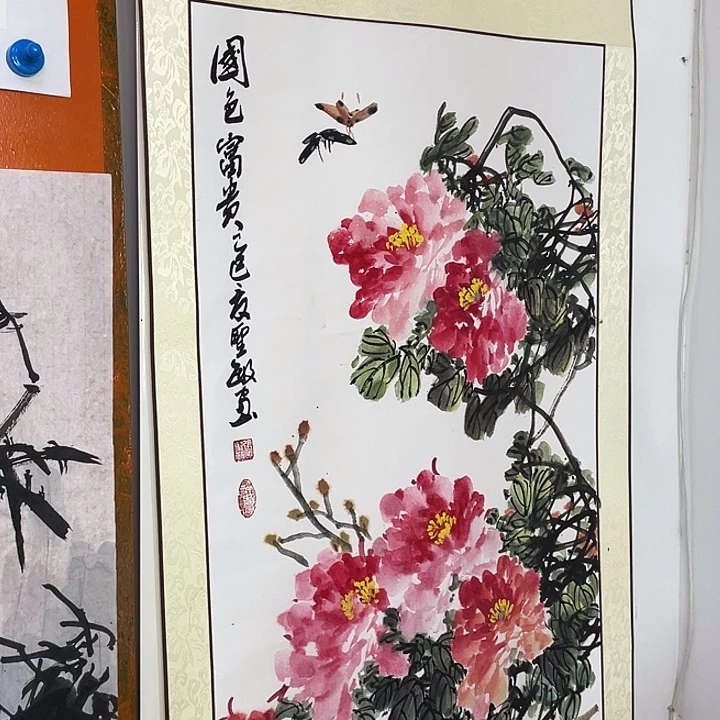 國色富貴己巳夏聖敏画